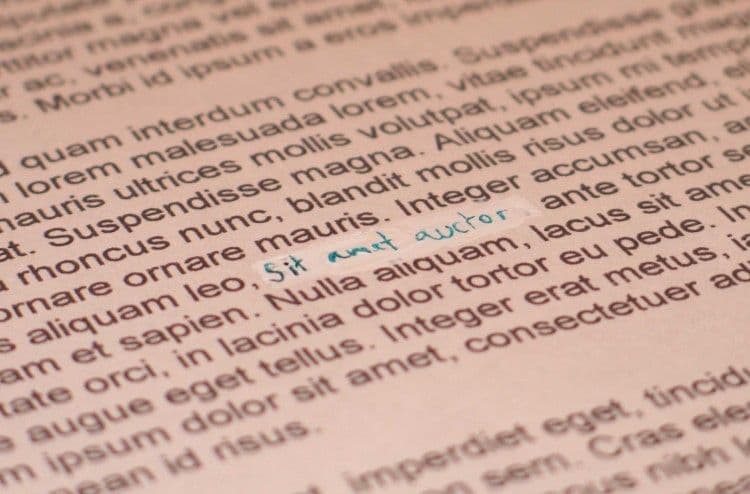 magna vel
ac, venenatis sit amet
s. Morbi id ipsum a eros
quam interdum convallis. Suspendisse
lorem malesuada lorem, vitae tincidunt
mauris ultrices mollis volutpat, ipsum mi
at. Suspendisse magna. Aliquam eleifend,
rhoncus nunc, blandit mollis risus dolor ut
ornare ornare mauris. Integer accumsan,
s aliquam leo, Sit amet auctor, ante tortor
am et sapien. Nulla aliquam, lacus sit
tate orci, in lacinia dolor tortor eu pede. In
augue eget tellus. Integer erat metus,
m ipsum dolor sit amet, consectetuer
ean id risus.
imperdiet eget,
sem. Cras